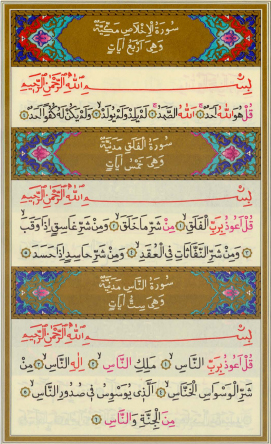 سُورَةُ الْاِخْلَاصِ مَكِّيَّةٌ
وَهِيَ اَرْبَعُ اٰيَاتٍ
بِسْمِ اللّٰهِ الرَّحْمٰنِ الرَّحِيمِ
قُلْ هُوَ اللّٰهُ اَحَدٌ ١ اَللّٰهُ الصَّمَدُ ٢ لَمْ يَلِدْ وَلَمْ يُولَدْ ٣ وَلَمْ يَكُنْ لَهُ كُفُوًا اَحَدٌ ٤
سُورَةُ الْفَلَقِ مَدَنِيَّةٌ
وَهِيَ خَمْسُ اٰيَاتٍ
بِسْمِ اللّٰهِ الرَّحْمٰنِ الرَّحِيمِ
قُلْ اَعُوذُ بِرَبِّ الْفَلَقِ ١ مِنْ شَرِّ مَا خَلَقَ ٢ وَمِنْ شَرِّ غَاسِقٍ اِذَا وَقَبَ
٣ وَمِنْ شَرِّ النَّفَّاثَاتِ فِي الْعُقَدِ ٤ وَمِنْ شَرِّ حَاسِدٍ اِذَا حَسَدَ ٥
سُورَةُ النَّاسِ مَدَنِيَّةٌ
وَهِيَ سِتُّ اٰيَاتٍ
بِسْمِ اللّٰهِ الرَّحْمٰنِ الرَّحِيمِ
قُلْ اَعُوذُ بِرَبِّ النَّاسِ ١ مَلِكِ النَّاسِ ٢ اِلٰهِ النَّاسِ ٣ مِنْ
شَرِّ الْوَسْوَاسِ الْخَنَّاسِ ٤ اَلَّذِي يُوَسْوِسُ فِي صُدُورِ النَّاسِ ٥
مِنَ الْجِنَّةِ وَالنَّاسِ ٦